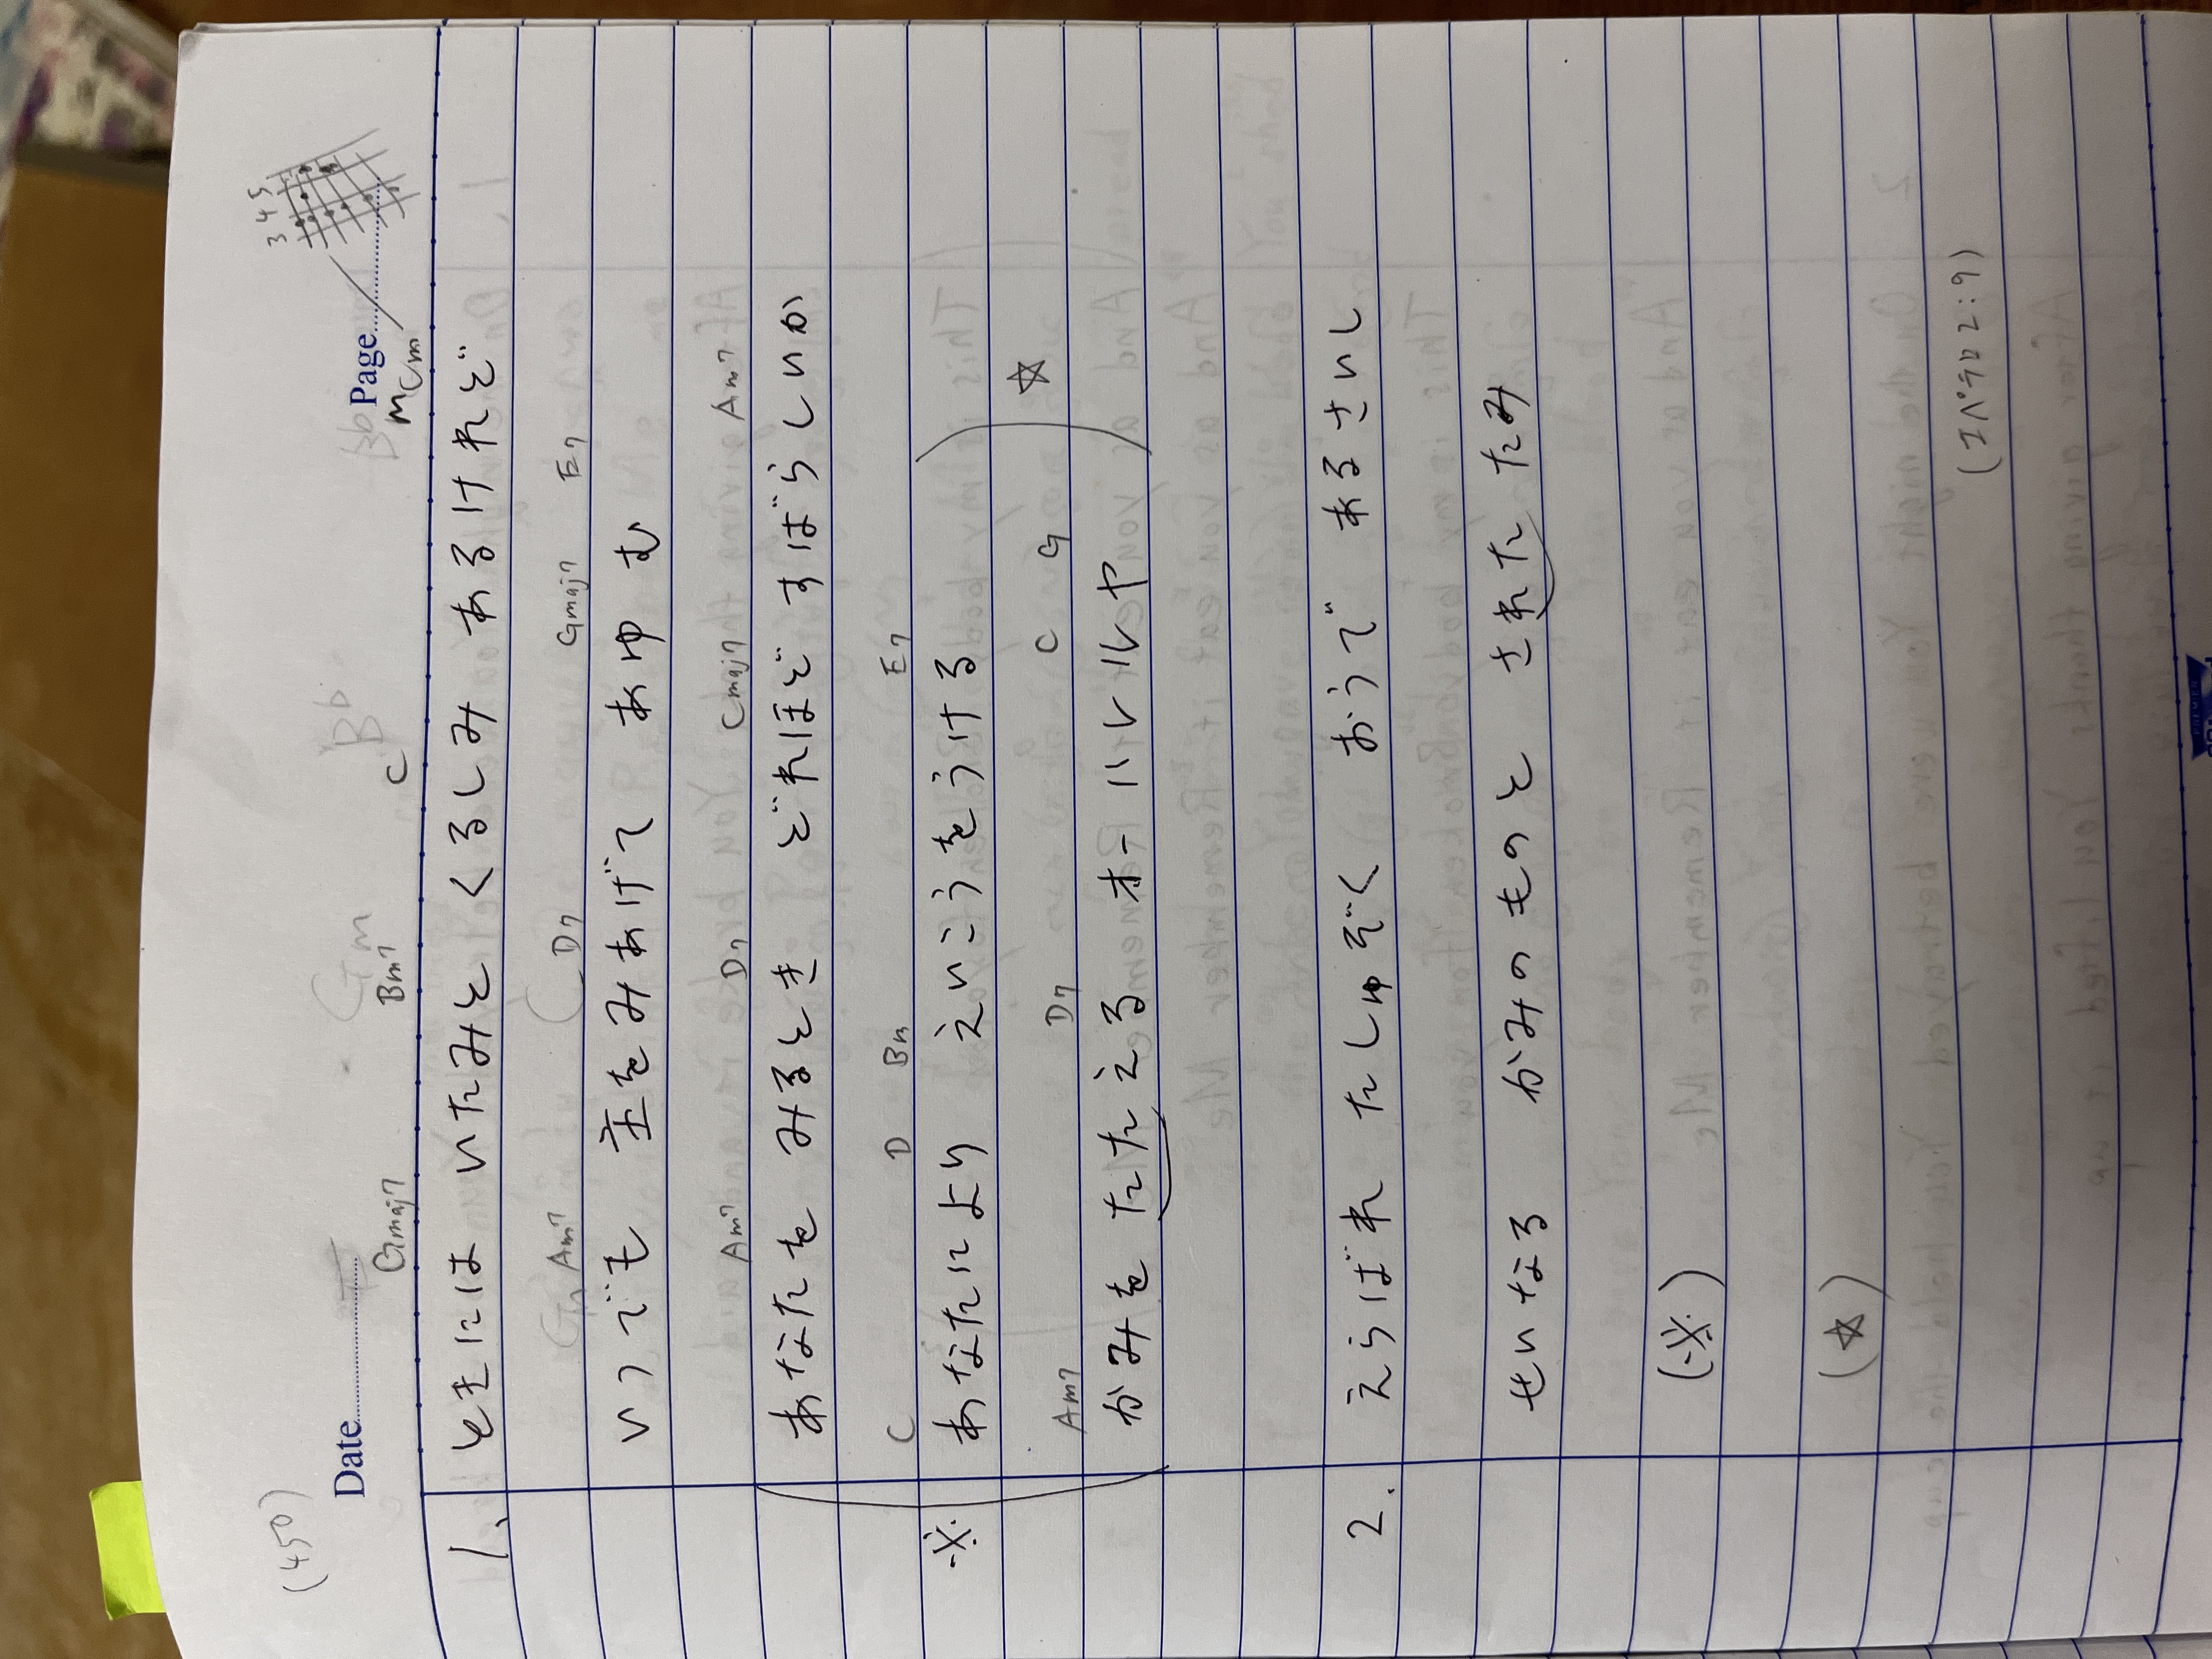 (450)
3 4 5
Date
Page
Cm
Gmaj7 Bm7 C
1、ときには いたみと くるしみ あるけれど
Am7 D7 Gmaj7 E7
いつでも 主をみあげて あゆむ
Am7 D7 Cmaj7 Am7
あなたを みるとき どれほど すばらしいか
C D Bm E7
※ あなたにより えいこうをうける
☆
Am7 D7 C G
かみを たたえる オー ハレルヤ
2. えらばれ たしゅぞく おうで あるさいし
せいなる かみのものと された たみ
(※)
(☆)
(Iペテロ2:9)